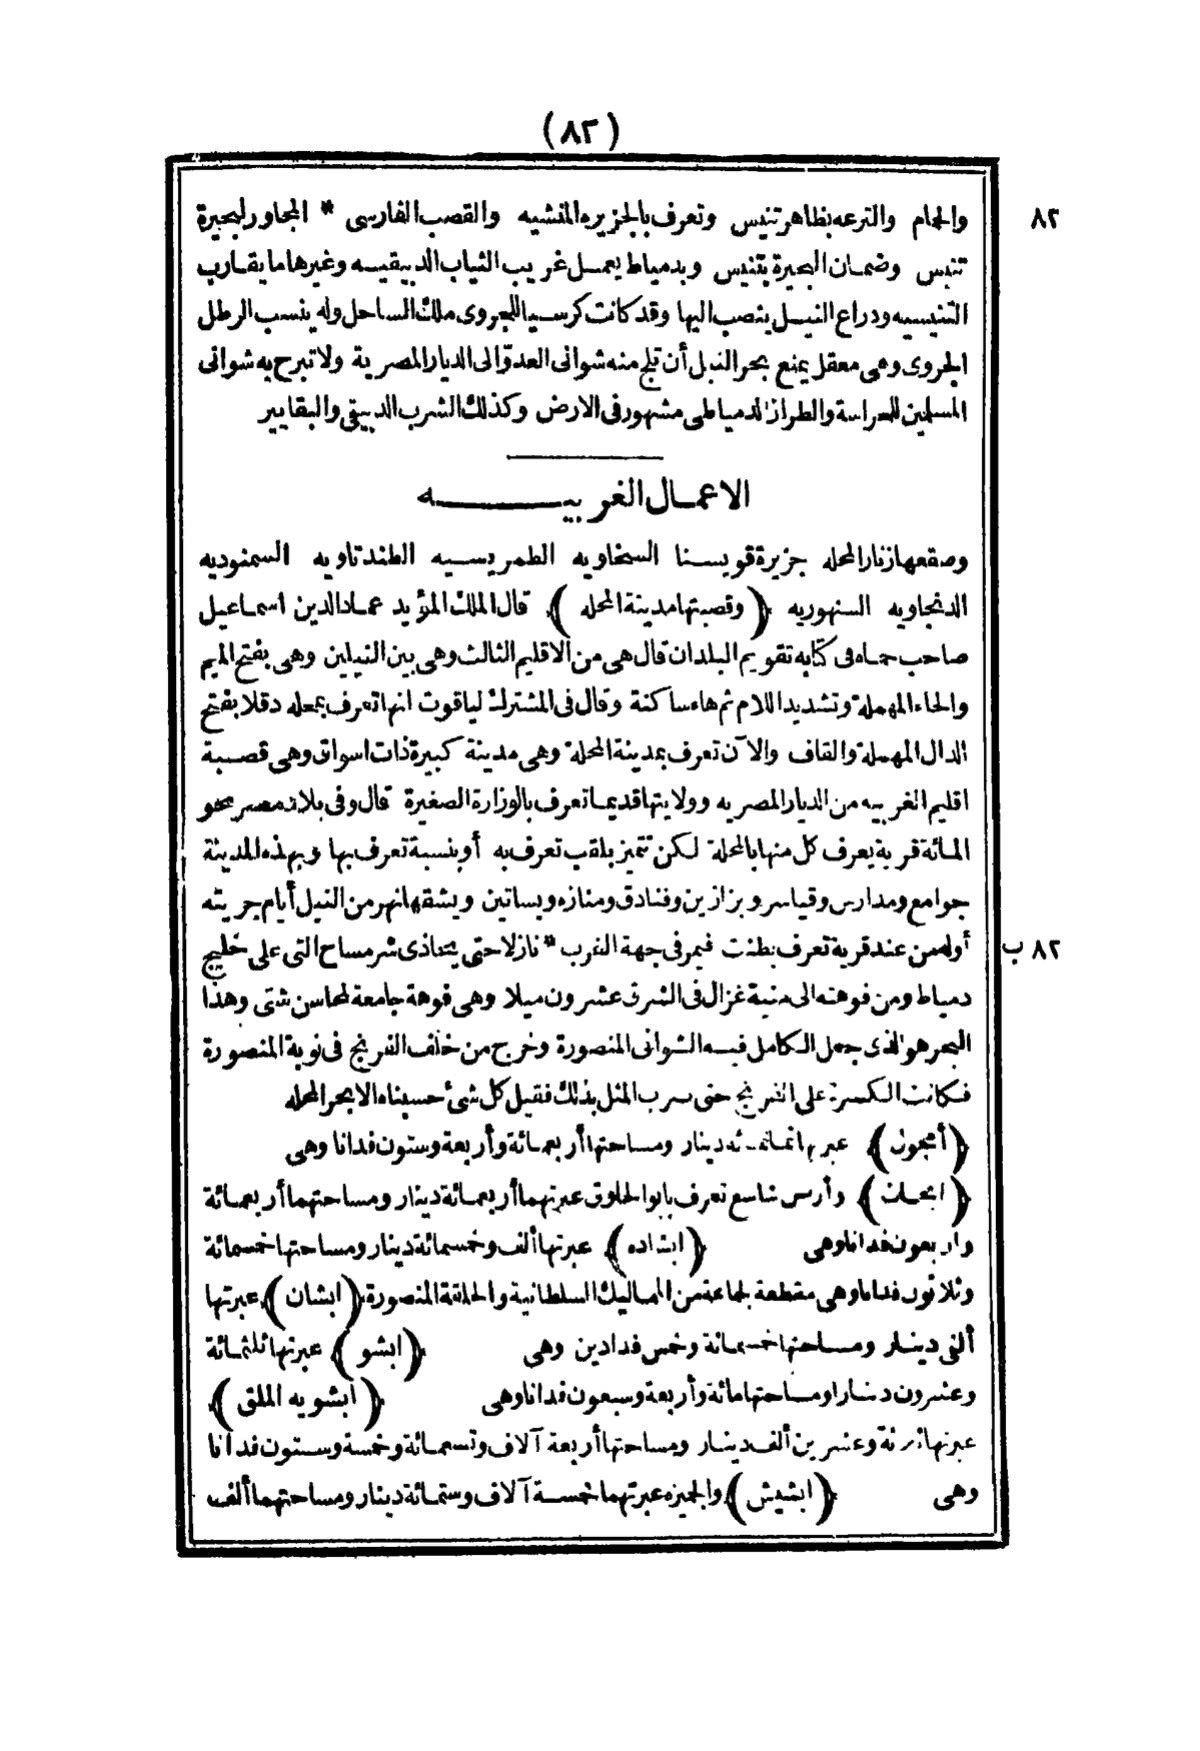 (٨٢)
والحمام والترعه بظاهر تنيس وتعرف بالجزيره المنشيه والقصب الفارسى * المجاور لبحيرة
٨٢
تنيس وضمان البحيرة بتنيس وبدمياط يعمل غريب الثياب الدبيقيه وغيرها ما يقارب
التنيسيه ودراع النيل ينصب اليها وقد كانت كرسيا للجروى ملك الساحل وله ينسب الرطل
الجروى وهى معقل يمنع بحر النيل أن تلج منه شوانى العدوّ الى الديار المصرية ولا تبرح به شوانى
المسلمين للحراسة والطراز الدمياطى مشهور فى الارض وكذلك الشرب الدبيقى والبقايير
الاعمال الغربيه
وصقعها زنار المحله جزيرة قويسنا السخاويه الطمريسيه الطندتاويه السمنوديه
الدنجاويه السنهوريه (وقصبتها مدينة المحله) قال الملك المؤيد عماد الدين اسماعيل
صاحب حماه فى كتابه تقويم البلدان قال هى من الاقليم الثالث وهى بين النيلين وهى بفتح الميم
والحاء المهملة وتشديد اللام ثم هاء ساكنة وقال فى المشترك لياقوت انها تعرف بمحله دقلا بفتح
الدال المهملة والقاف والآن تعرف بمدينة المحلة وهى مدينة كبيرة ذات اسواق وهى قصبة
اقليم الغربيه من الديار المصريه وولايتها قديما تعرف بالوزارة الصغيرة قال وفى بلاد مصر نحو
المائة قرية يعرف كل منها بالمحلة لكن تتميز بلقب تعرف به أو بنسبة تعرف بها وبهذه المدينة
جوامع ومدارس وقياسر وبزازين وفنادق ومنازه وبساتين ويشقها نهر من النيل أيام جريته
أوله من عند قرية تعرف بطنت فيمر فى جهة الغرب * نازلا حتى يحاذى شرمساح التى على خليج
٨٢ ب
دمياط ومن فوهته الى منية غزال فى الشرق عشرون ميلا وهى فوهة جامعة لمحاسن شتى وهذا
البحر هو الذى جعل الكامل فيه الشوانى المنصورة وخرج من خلف الفرنج فى نوبة المنصورة
فكانت الكسرة على الفرنج حتى ضرب المثل بذلك فقيل كل شئ حسبناه الا بحر المحله
(أبجون) عبرتها ثمانمائه دينار ومساحتها أربعمائة وأربعة وستون فدانا وهى
(ابجان) وأرس شاسع تعرف بابو الحلاوق عبرتهما أربعمائة دينار ومساحتهما أربعمائة
واربعون فدانا وهى (ابشاده) عبرتها ألف وخمسمائة دينار ومساحتها خمسمائة
وثلاثون فدانا وهى مقطعة لجماعة من المماليك السلطانية والحلقة المنصورة (ابشان) عبرتها
ألفى دينار ومساحتها خمسمائة وخمس فدادين وهى (ابشو) عبرتها ثلثمائة
وعشرون دينارا ومساحتها مائة وأربعة وسبعون فدانا وهى (ابشويه الملق)
عبرتها وعشرين ألف دينار ومساحتها أربعة آلاف وتسعمائة وخمسة وستون فدانا
وهى (ابشيش) والجيزه عبرتهما خمسة آلاف وستمائة دينار ومساحتهما ألف